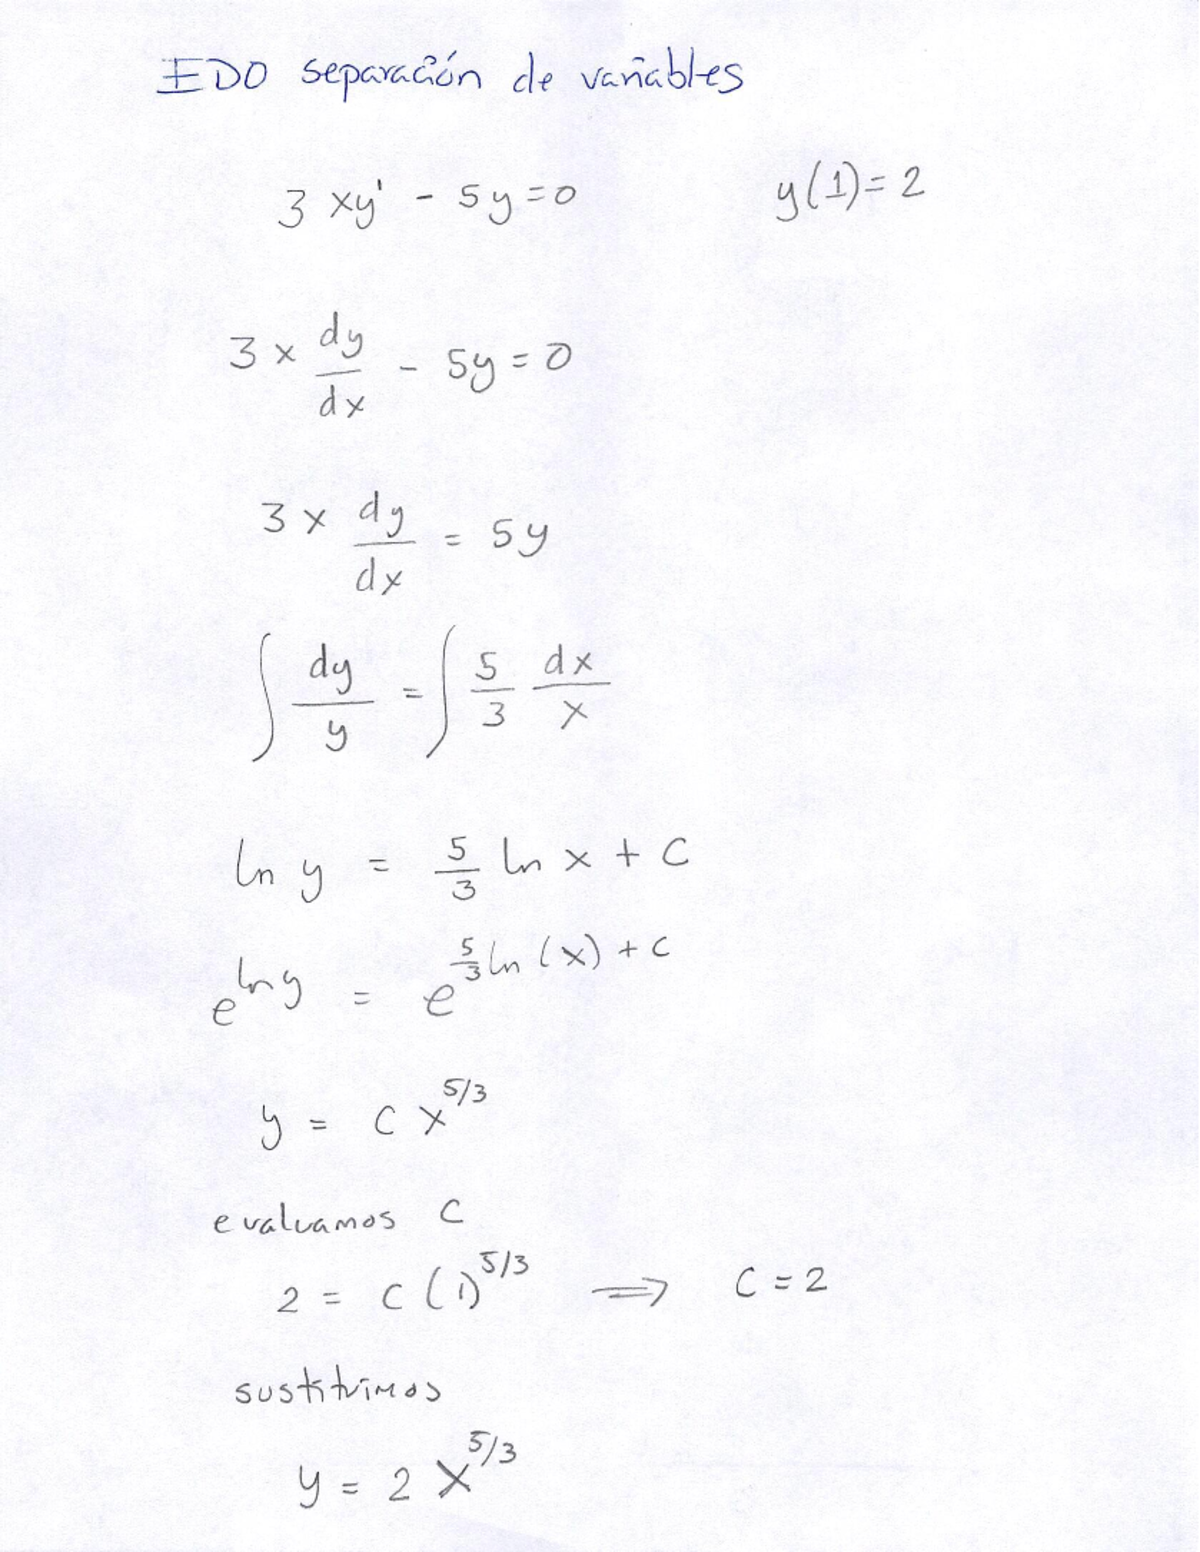 EDO separación de variables
3 xy' - 5y = 0        y(1) = 2
3x dy/dx - 5y = 0
3x dy/dx = 5y
∫ dy/y = ∫ 5/3 dx/x
ln y = 5/3 ln x + C
e^{ln y} = e^{5/3 ln(x) + C}
y = C x^{5/3}
evaluamos C
2 = C (1)^{5/3} ⟹ C = 2
sustituimos
y = 2 x^{5/3}